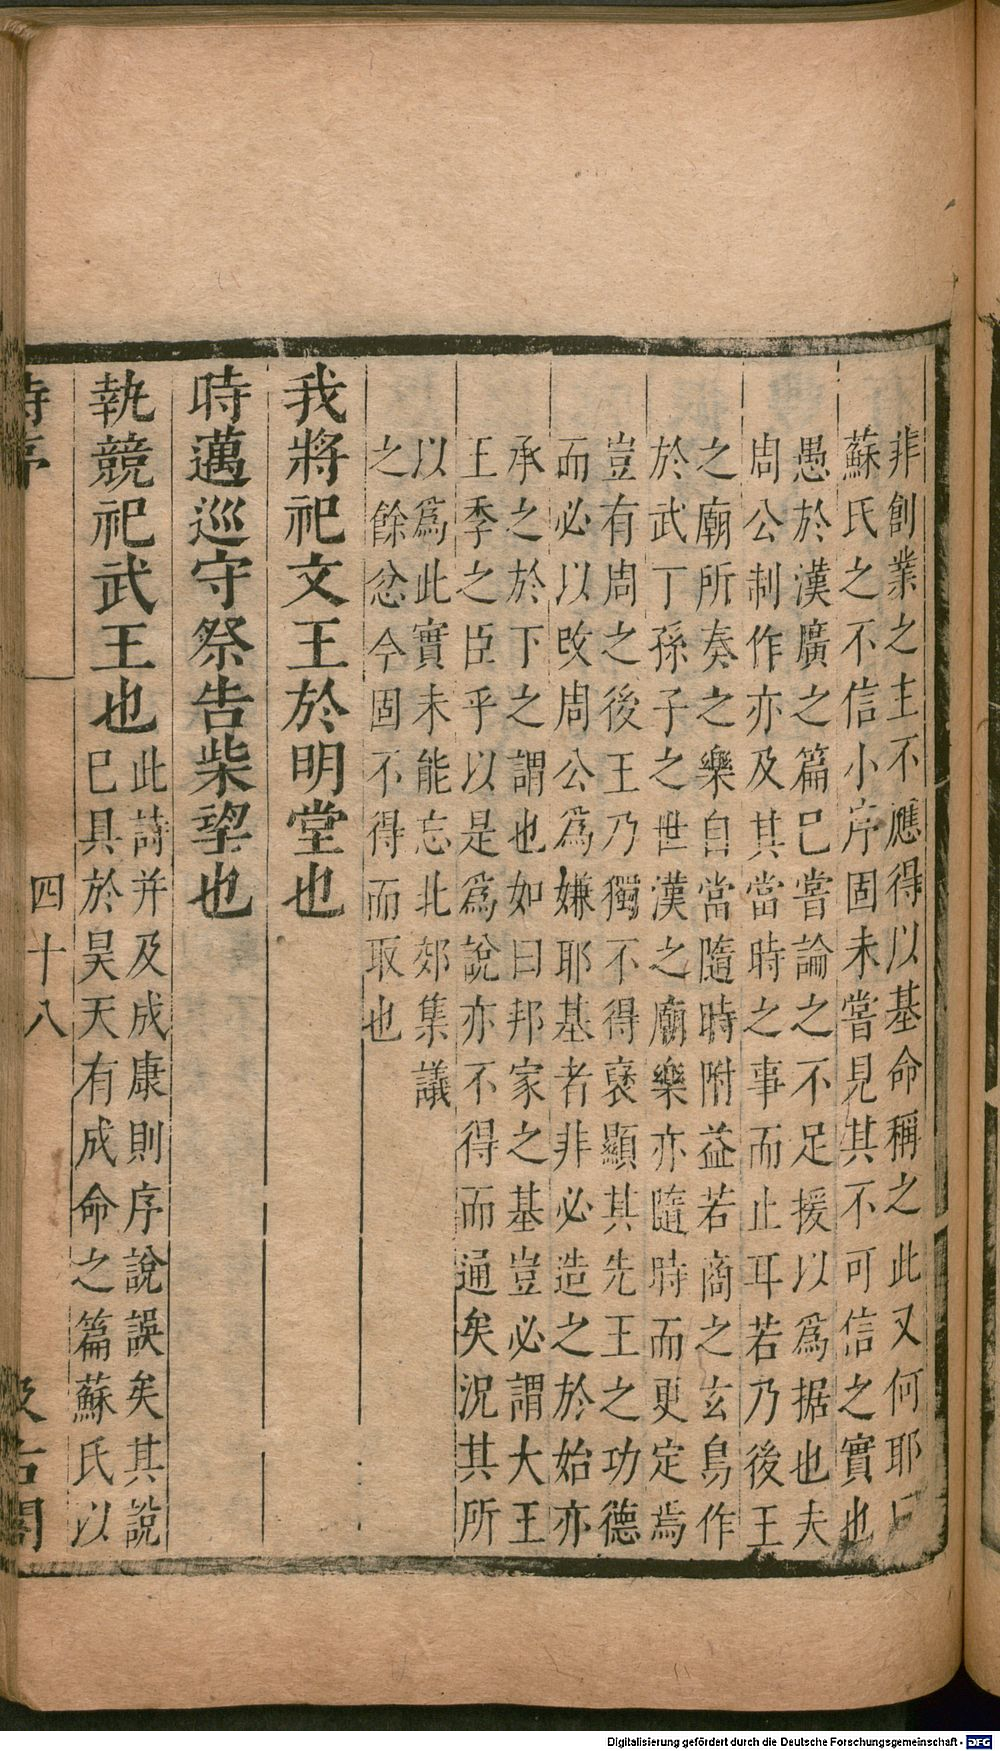 非創業之主不應得以基命稱之此又何耶曰
蘇氏之不信小序固未嘗見其不可信之實也
愚於漢廣之篇已嘗論之不足援以為据也夫
周公制作亦及其當時之事而止耳若乃後王
之廟所奏之樂自當隨時附益若商之玄鳥作
於武丁孫子之世漢之廟樂亦隨時而更定焉
豈有周之後王乃獨不得褒顯其先王之功德
而必以改周公為嫌耶基者非必造之於始亦
承之於下之謂也如曰邦家之基豈必謂大王
王季之臣乎以是為說亦不得而通矣況其所
以為此實未能忘北郊集議
之餘忿今固不得而取也
我將祀文王於明堂也
時邁巡守祭告柴望也
執競祀武王也
此詩并及成康則序說誤矣其說
已具於昊天有成命之篇蘇氏以
詩序
四十八
汲古閣
Digitalisierung gefördert durch die Deutsche Forschungsgemeinschaft - DFG